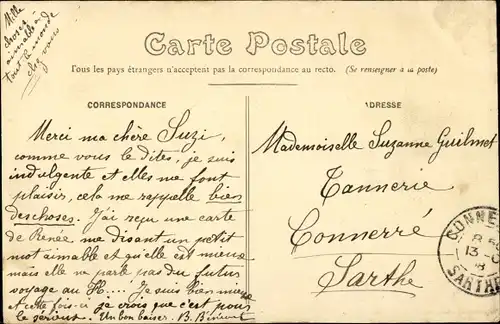 Mille
choses
aimables à
tout le monde
chez vous
Carte Postale
Tous les pays étrangers n'acceptent pas la correspondance au recto. (Se renseigner à la poste)
CORRESPONDANCE
ADRESSE
Merci ma chère Suzi,
comme vous le dites, je suis
indulgente et elles me font
plaisir, cela me rappelle bien
des choses. J'ai reçu une carte
de Renée me disant un petit
mot aimable et qui est mieux
mais elle ne parle pas du futur
voyage au H.... Je suis bien mieux
et cette fois-ci je crois que c'est pour
le sérieux. Un bon baiser. B.
Mademoiselle Suzanne Guilmet
Tannerie
Connerré
Sarthe
CONNE
13
SARTHE